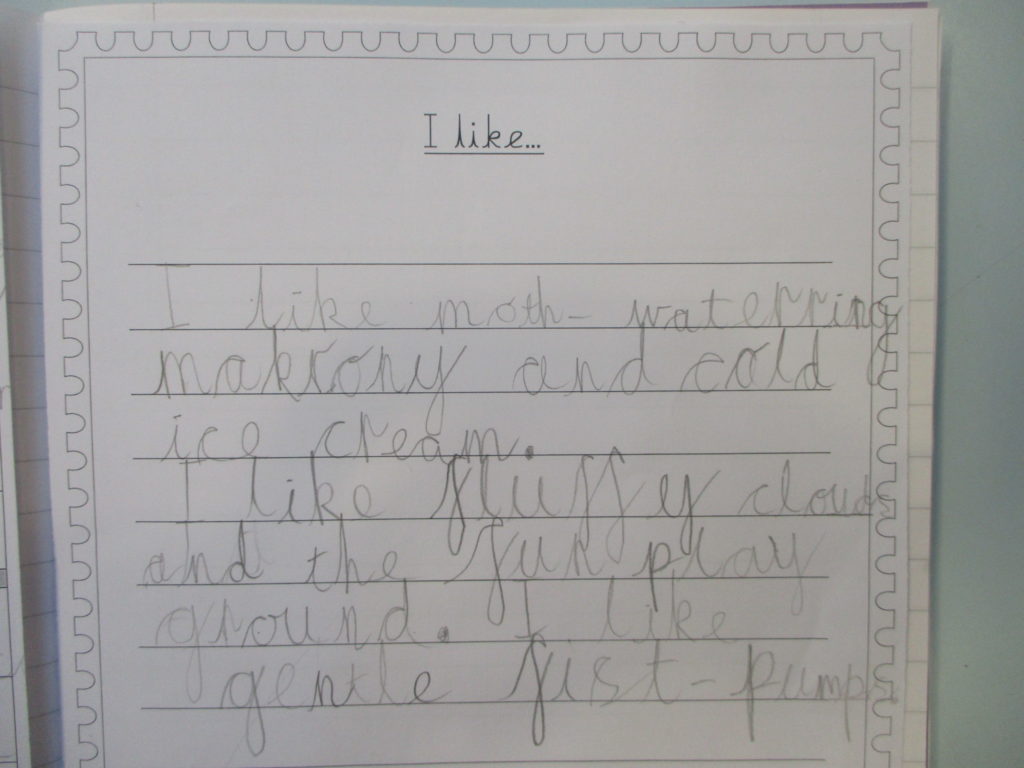 I like...
I like moth- waterring
makrony and cold
ice cream.
I like fluffy clouds
and the fun play
ground. I like
gentle fist-pumps